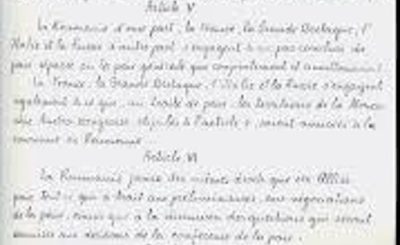 Article V
La Roumanie d'une part, la France, la Grande Bretagne, l'
Italie et la Russie d'autre part s'engagent à ne pas conclure de
paix séparée ou la paix générale que conjointement et simultanément.
La France, la Grande Bretagne, l'Italie et la Russie s'engagent
également à ce que, au traité de paix, les territoires de la Monar-
chie Austro-hongroise stipulés à l'article , soient annexés à la
couronne de Roumanie.
Article VI
La Roumanie jouira des mêmes droits que ses Alliés
pour tout ce qui a trait aux préliminaires, aux négociations
de la paix, ainsi qu'à la discussion des questions qui seront
soumises aux décisions de la conférence de la paix.